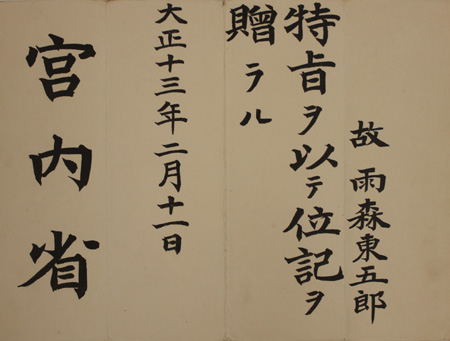 故 雨森東五郎
特旨ヲ以テ位記ヲ
贈ラル
大正十三年二月十一日
宮内省